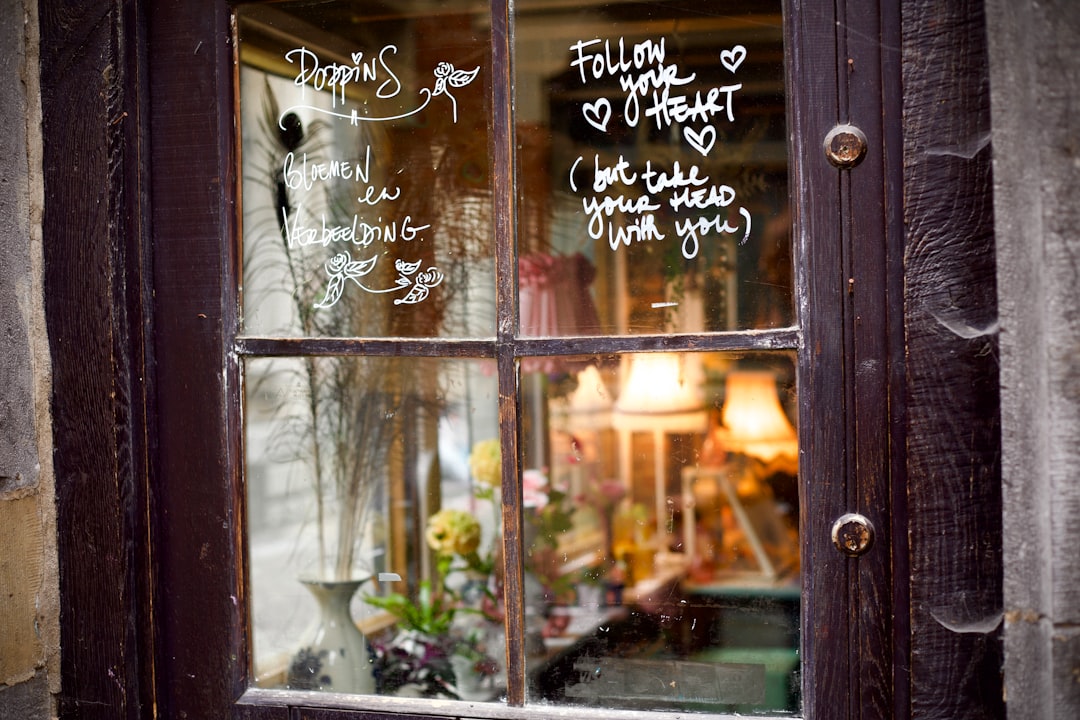 Poppins
Bloemen
en
Verbeelding.
Follow
your
Heart
(but take
your Head
with you)